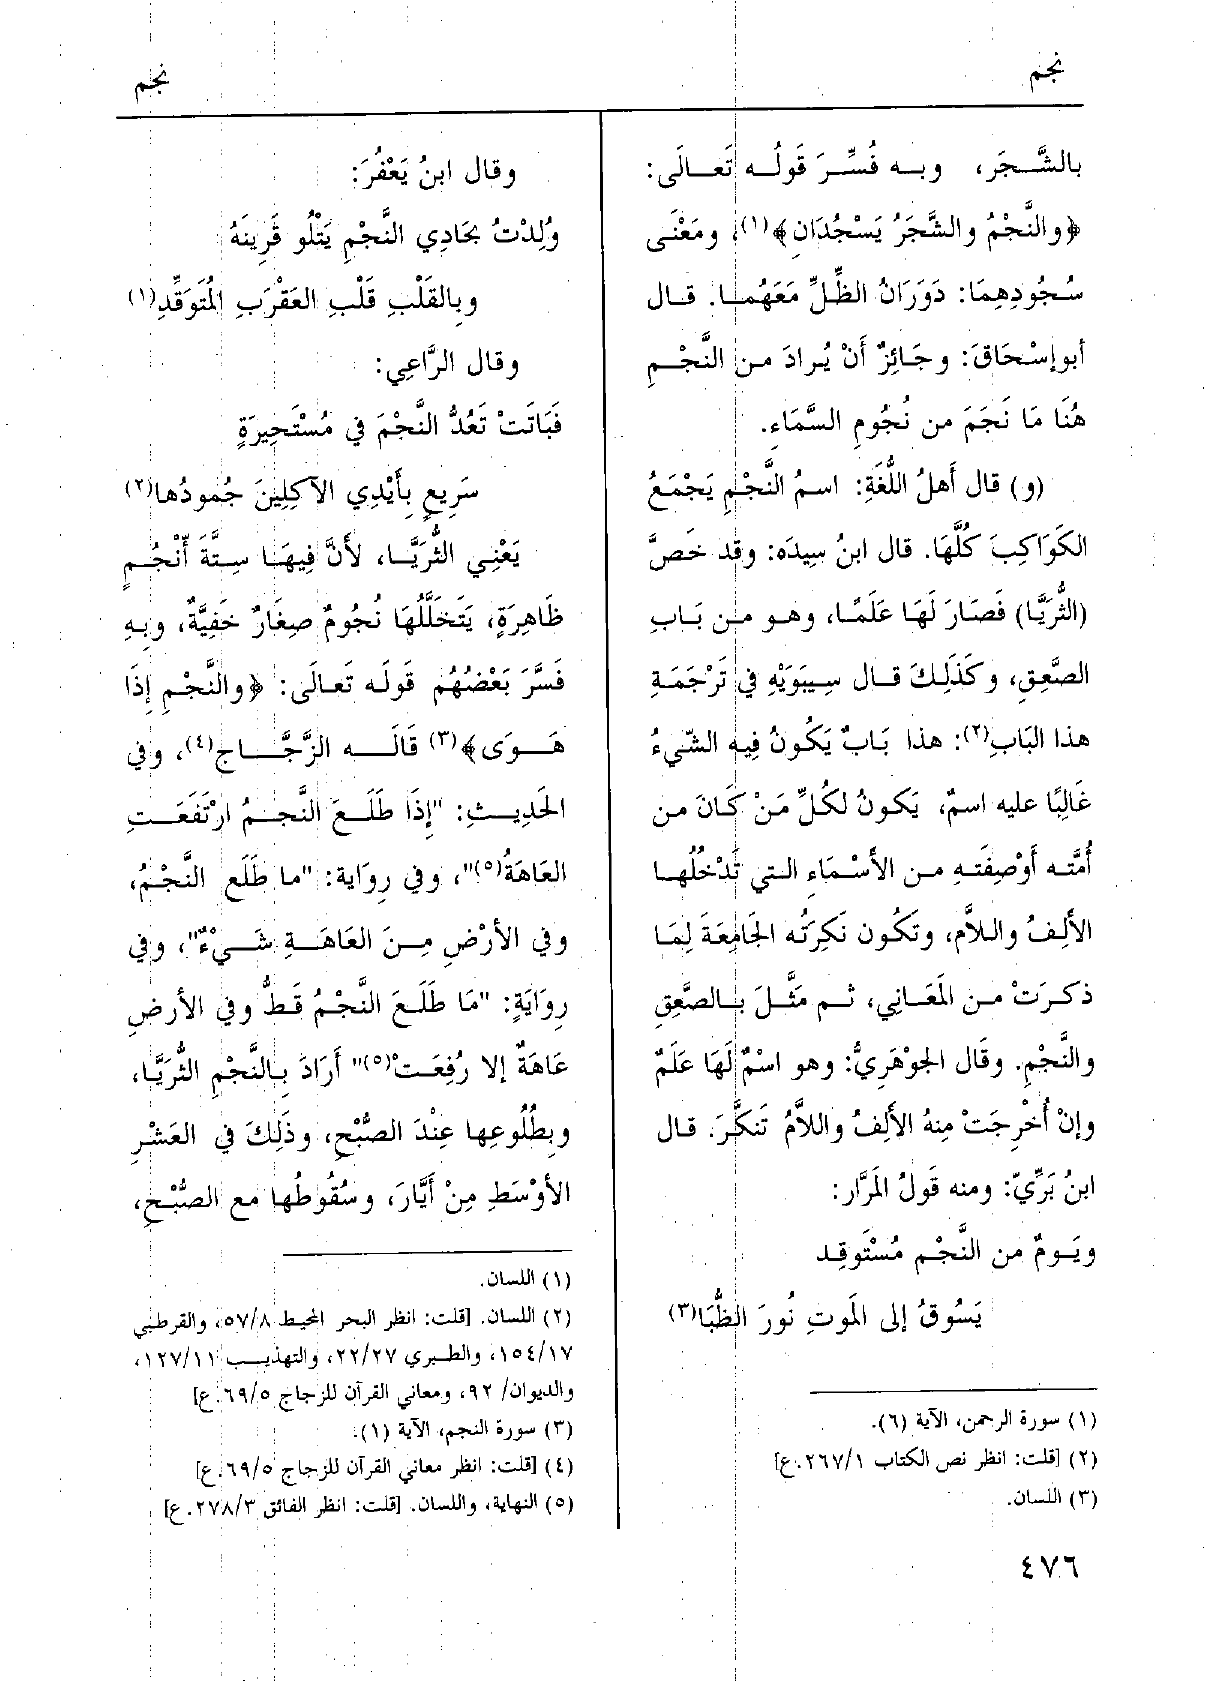 نجم
نجم
بالشَّجَر، وبه فُسِّرَ قَولُه تَعالَى:
﴿والنَّجْمُ والشَّجَرُ يَسْجُدَانِ﴾(١)، ومَعْنَى
سُجُودِهِمَا: دَوَرَانُ الظِّلِّ مَعَهُما. قال
أبوإسْحَاقَ: وجَائِزٌ أَنْ يُرادَ من النَّجْمِ
هُنَا مَا نَجَمَ من نُجُومِ السَّمَاءِ.
(و) قال أَهلُ اللُّغَةِ: اسمُ النَّجْمِ يَجْمَعُ
الكَوَاكِبَ كُلَّهَا. قال ابنُ سِيدَه: وقد خَصَّ
(الثُّرَيَّا) فَصَارَ لَهَا عَلَمًا، وهو من بَابِ
الصَّعِقِ، وكَذَلِكَ قال سِيبَوَيْهِ في تَرْجَمَةِ
هذا البَابِ(٢): هذا بَابٌ يَكُونُ فِيه الشّيءُ
غَالِبًا عليه اسمٌ، يَكونُ لكُلِّ مَنْ كَانَ من
أُمَّتِه أَوْصِفَتِهِ من الأَسْمَاءِ التي تَدْخُلُها
الأَلِفُ واللاَّم، وتَكُون نَكِرَتُه الجَامِعَةَ لِمَا
ذكرَتْ من المَعَانِي، ثم مَثَّلَ بالصَّعِقِ
والنَّجْمِ. وقَال الجوْهَرِيُّ: وهو اسْمٌ لَهَا عَلَمٌ
وإنْ أُخْرِجَتْ مِنهُ الأَلِفُ واللاَّمُ تَنكَّرَ. قال
ابنُ بَرِّيّ: ومنه قَولُ المَرَّار:
ويَومٌ من النَّجْم مُسْتَوقِد
يَسُوقُ إلى المَوتِ نُورَ الظُّبَا(٣)
(١) سورة الرحمن، الآية (٦).
(٢) [قلت: انظر نص الكتاب ٢٦٧/١.ع]
(٣) اللسان.
وقال ابنُ يَعْفُرَ:
وُلِدْتُ بحَادِي النَّجْمِ يَتْلُو قَرِينَهُ
وبِالقَلْبِ قَلْبِ العَقْرَبِ المُتَوَقِّدِ(١)
وقال الرَّاعِي:
فَبَاتَتْ تَعُدُّ النَّجْمَ في مُسْتَحِيرَةٍ
سَرِيعٍ بِأَيْدِي الآكِلِينَ جُمودُها(٢)
يَعْنِي الثُّرَيَّا، لأَنَّ فِيهَا سِتَّةَ أَنْجُمٍ
ظَاهِرَةٍ، يَتَخَلَّلُهَا نُجُومٌ صِغَارٌ خَفِيَّةٌ، وبِهِ
فَسَّرَ بَعْضُهُم قَولَه تَعالَى: ﴿والنَّجْمِ إِذَا
هَوَى﴾(٣) قَالَه الزَّجَّاج(٤)، وفي
الحَدِيثِ: "إِذَا طَلَعَ النَّجمُ ارْتَفَعَتِ
العَاهَةُ(٥)"، وفي رِوَاية: "ما طَلَع النَّجْمُ،
وفي الأرْضِ مِنَ العَاهَةِ شَيْءٌ"، وفي
رِوَايَةٍ: "مَا طَلَعَ النَّجْمُ قَطُّ وفي الأَرضِ
عَاهَةٌ إلا رُفِعَتْ(٥)" أَرَادَ بِالنَّجْمِ الثُّرَيَّا،
وبِطُلُوعِها عِنْدَ الصُّبْحِ، وذَلِكَ في العَشْرِ
الأَوْسَطِ مِنْ أَيَّارَ، وسُقُوطُها مع الصُّبْحِ،
(١) اللسان.
(٢) اللسان. [قلت: انظر البحر المحيط ٥٧/٨، والقرطبي
١٥٤/١٧، والطبري ٢٢/٢٧، والتهذيب ١٢٧/١١،
والديوان/ ٩٢، ومعاني القرآن للزجاج ٦٩/٥.ع]
(٣) سورة النجم، الآية (١).
(٤) [قلت: انظر معاني القرآن للزجاج ٦٩/٥.ع]
(٥) النهاية، واللسان. [قلت: انظر الفائق ٢٧٨/٣.ع]
٤٧٦